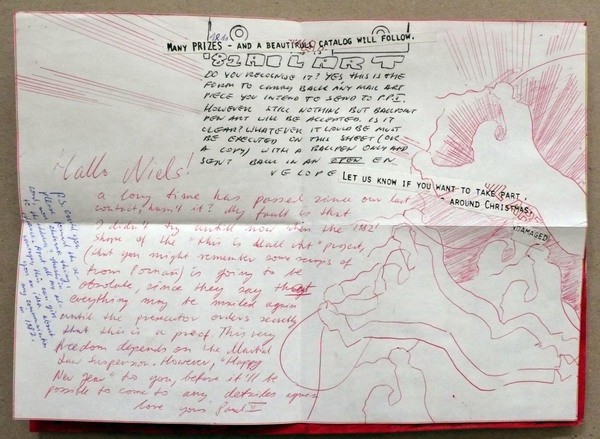 MANY PRIZES - AND A BEAUTIFUL CATALOG WILL FOLLOW.
'82 MAIL ART
DO YOU RECOGNISE IT? YES THIS IS THE
FORM TO CARRY BACK ANY MAIL ART
PIECE YOU INTEND TO SEND TO P.P.I.
HOWEVER STILL NOTHING BUT BALLPOINT
PEN ART WILL BE ACCEPTED. IS IT
CLEAR? WHATEVER IT WOULD BE MUST
BE EXECUTED ON THIS SHEET (OR
A COPY) WITH A BALLPEN ONLY AND
SENT BACK IN AN OPEN EN-
VELOPE
LET US KNOW IF YOU WANT TO TAKE PART.
- AROUND CHRISTMAS.
(DAMAGED)
Hallo Niels!
a long time has passed since our last
contact, hasn't it? My fault is that
I didn't try untill now when the 1982
shape of the "this is dealt cht" project,
(that you might remember some scraps of
from Poznań) is going to be
obsolute, since they say that
everything may be mailed again
untill the prosecutor orders secretly
that this is a proof. This very
freedom depends on the Martial
Law suspension. However, "Happy
New Year" to you, before it'll be
possible to come to any detailes again
love your Paul II
P.S. could you
please
in 1982.